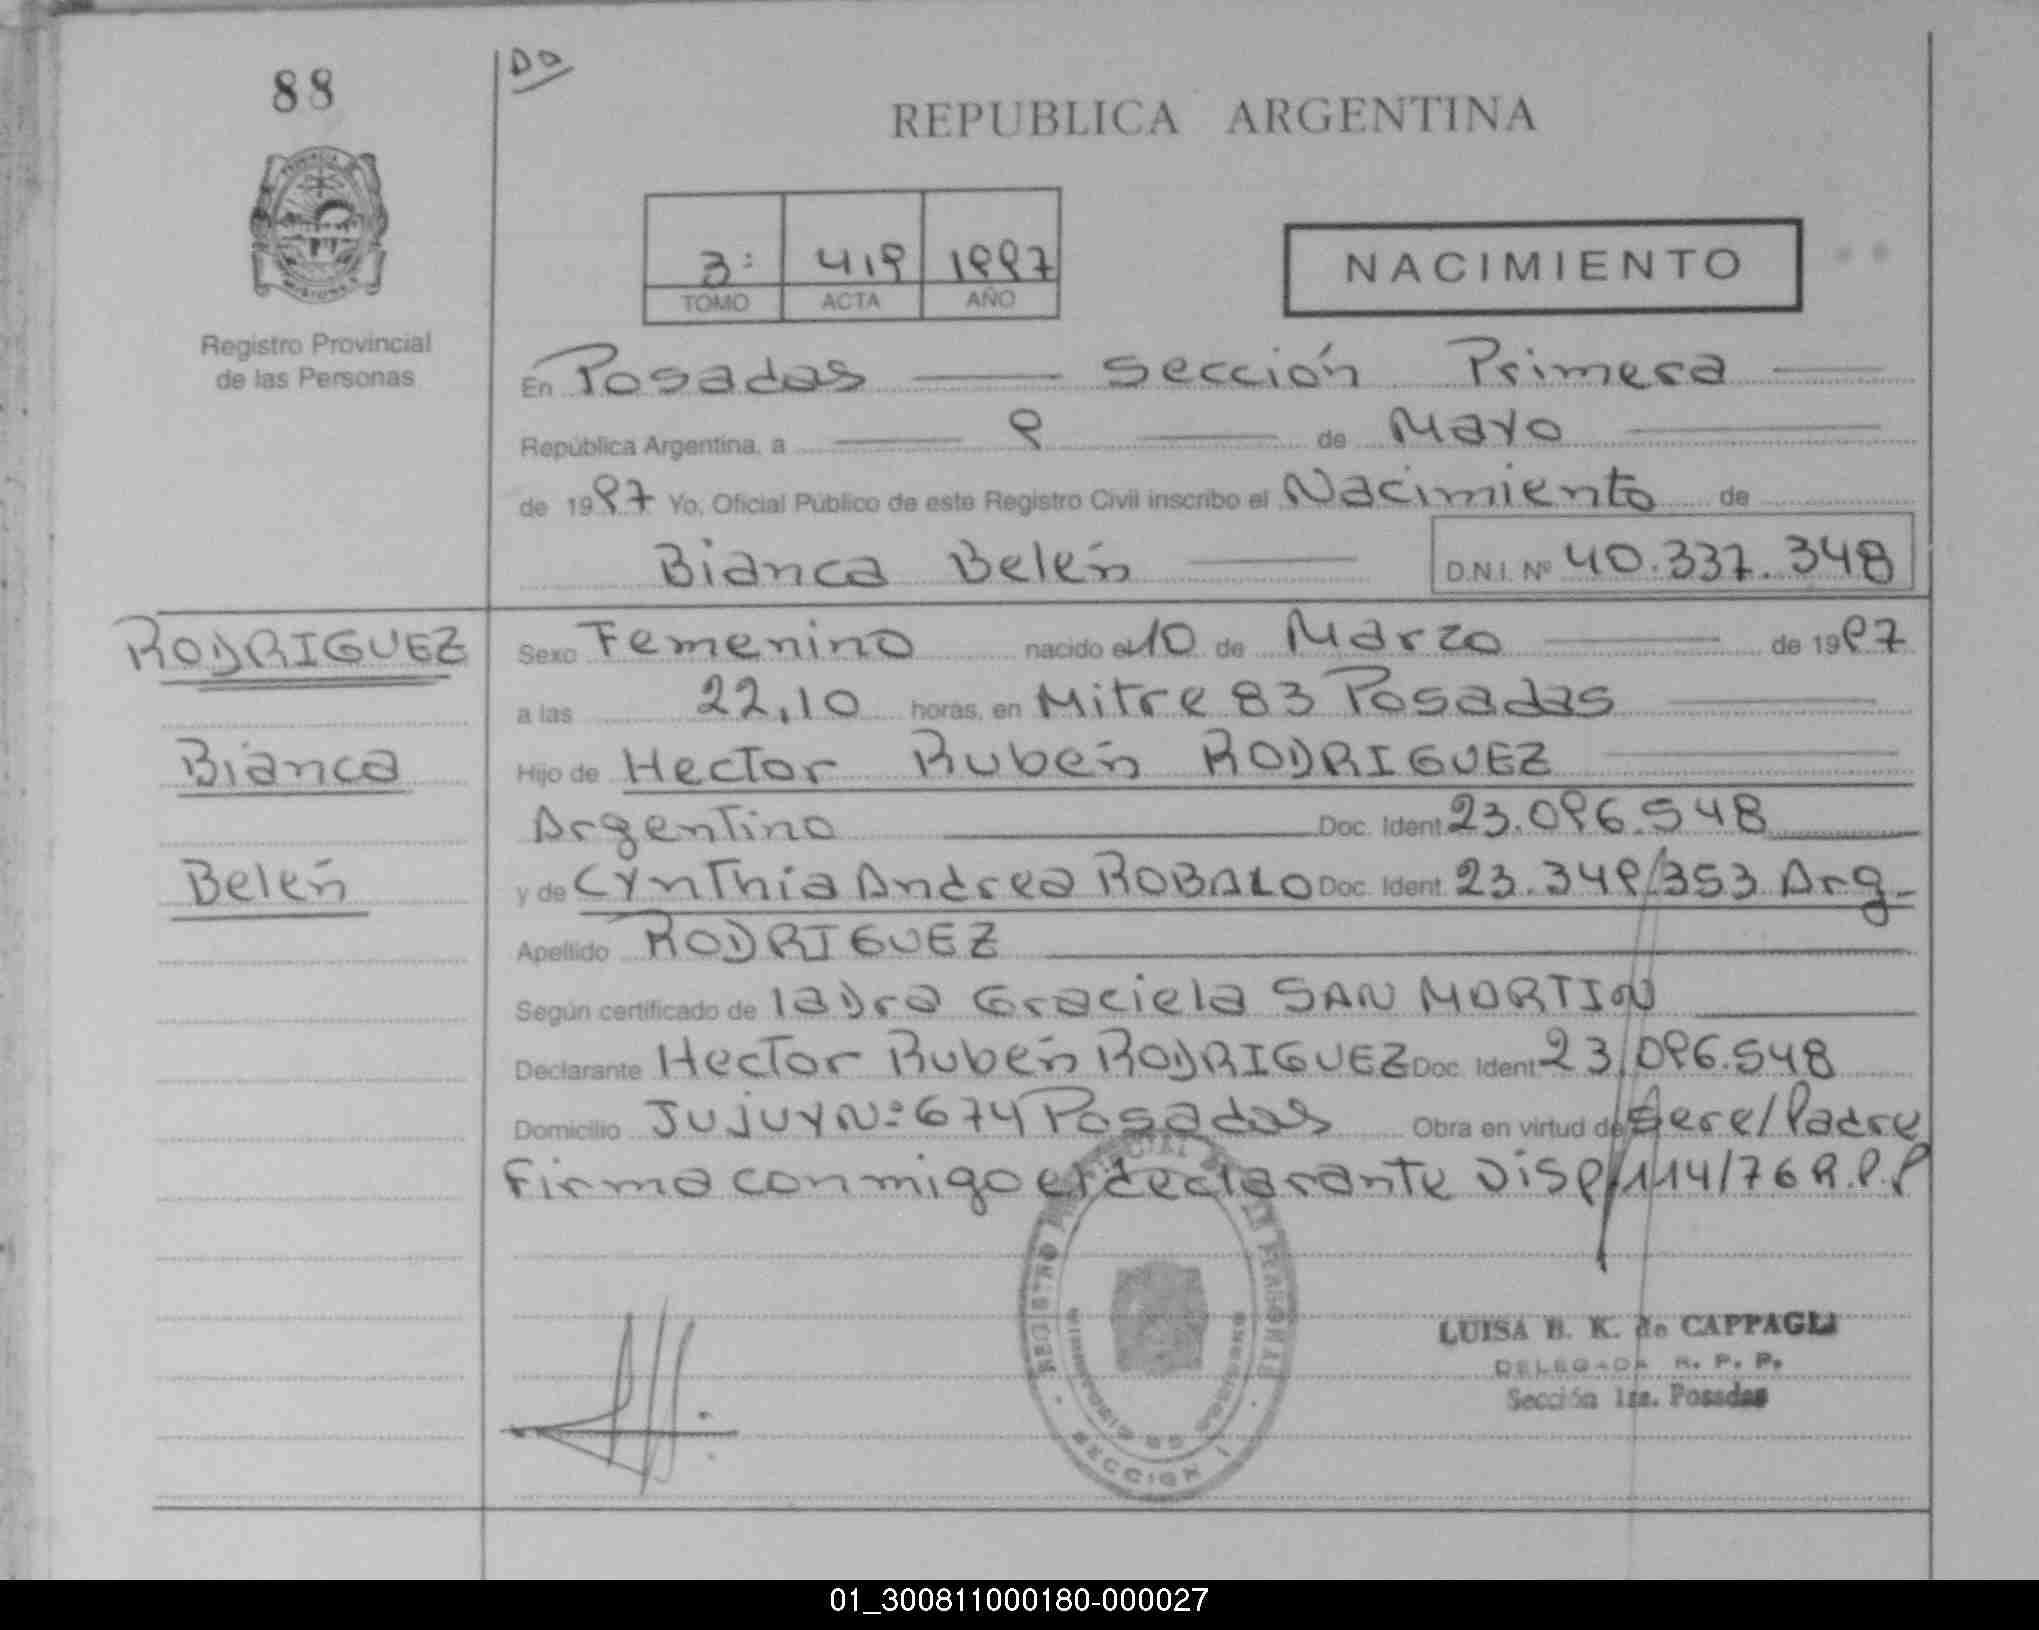 88
Do
REPUBLICA ARGENTINA
3: 419 1997
TOMO ACTA AÑO
NACIMIENTO
Registro Provincial
de las Personas
En Posadas sección Primera
República Argentina, a 9 de Mayo
de 1997 Yo, Oficial Público de este Registro Civil inscribo el Nacimiento de
Bianca Belén D.N.I. Nº 40.337.348
RODRIGUEZ
Bianca
Belén
Sexo Femenino nacido el 10 de Marzo de 1997
a las 22,10 horas, en Mitre 83 Posadas
Hijo de Hector Rubén RODRIGUEZ
Argentino Doc. Ident. 23.096.548
y de Cynthia Andrea ROBALO Doc. Ident. 23.349.353 Arg.
Apellido RODRIGUEZ
Según certificado de la Dra Graciela SAN MARTIN
Declarante Hector Rubén RODRIGUEZ Doc. Ident. 23.096.548
Domicilio Jujuy Nº 674 Posadas Obra en virtud de Padre
Firma conmigo el declarante Disp. 114/76 R.P.P
REGISTRO PROVINCIAL DE LAS PERSONAS
SECCION 1
LUISA B. K. de CAPPAGLI
DELEGADA R. P. P.
Sección 1ra. Posadas
01_300811000180-000027